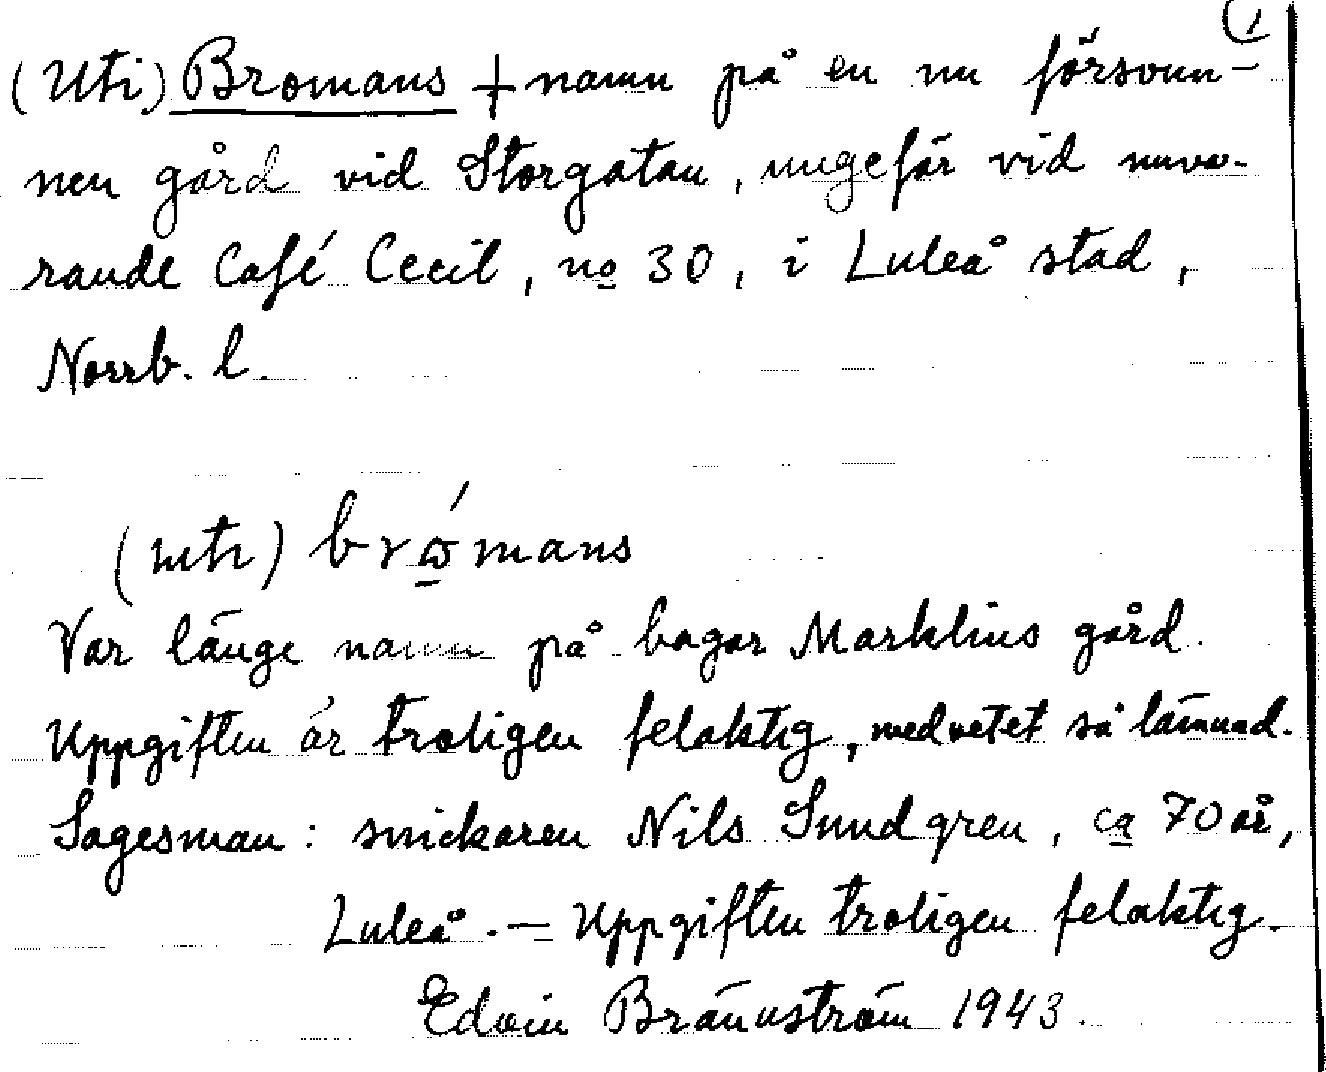 1
(Uti) Bromans + namn på en nu försvun-
nen gård vid Storgatan, ungefär vid nuva-
rande Café Cecil, no 30, i Luleå stad,
Norrb. l.
(uti) bro̱´mans
Var länge namn på bagar Marklins gård.
Uppgiften är troligen felaktig, medvetet så lämnad.
Sagesman: snickaren Nils Sundgren, ca 70 år,
Luleå. — Uppgiften troligen felaktig.
Edvin Brännström 1943.